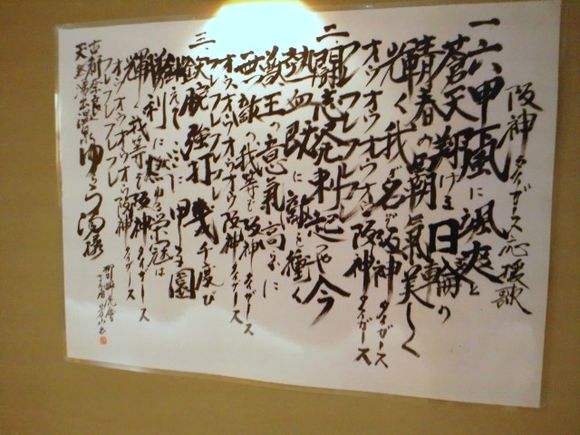 阪神タイガース応援歌
一、六甲颪に颯爽と
蒼天翔ける日輪の
青春の覇気美しく
輝く我が名ぞ阪神タイガース
オウオウオウオウ阪神タイガース
フレフレフレフレ
二、闘志溌剌起つや今
熱血既に敵を衝く
獣王の意氣高らかに
無敵の我等ぞ阪神タイガース
オウオウオウオウ阪神タイガース
フレフレフレフレ
三、鉄腕強打幾千度び
鍛えてここに甲子園
勝利に燃ゆる栄冠は
輝く我等ぞ阪神タイガース
オウオウオウオウ阪神タイガース
フレフレフレフレ
古都奈良
天然